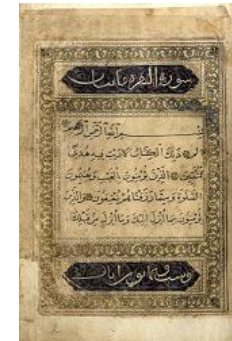 سورة البقرة مائتان
بسم الله الرحمن الرحيم
الم ذلك الكتاب لا ريب فيه هدى
للمتقين الذين يؤمنون بالغيب ويقيمون
الصلوة ومما رزقناهم ينفقون والذين
يؤمنون بما أنزل اليك وما أنزل من قبلك
وست وثمانون آيات